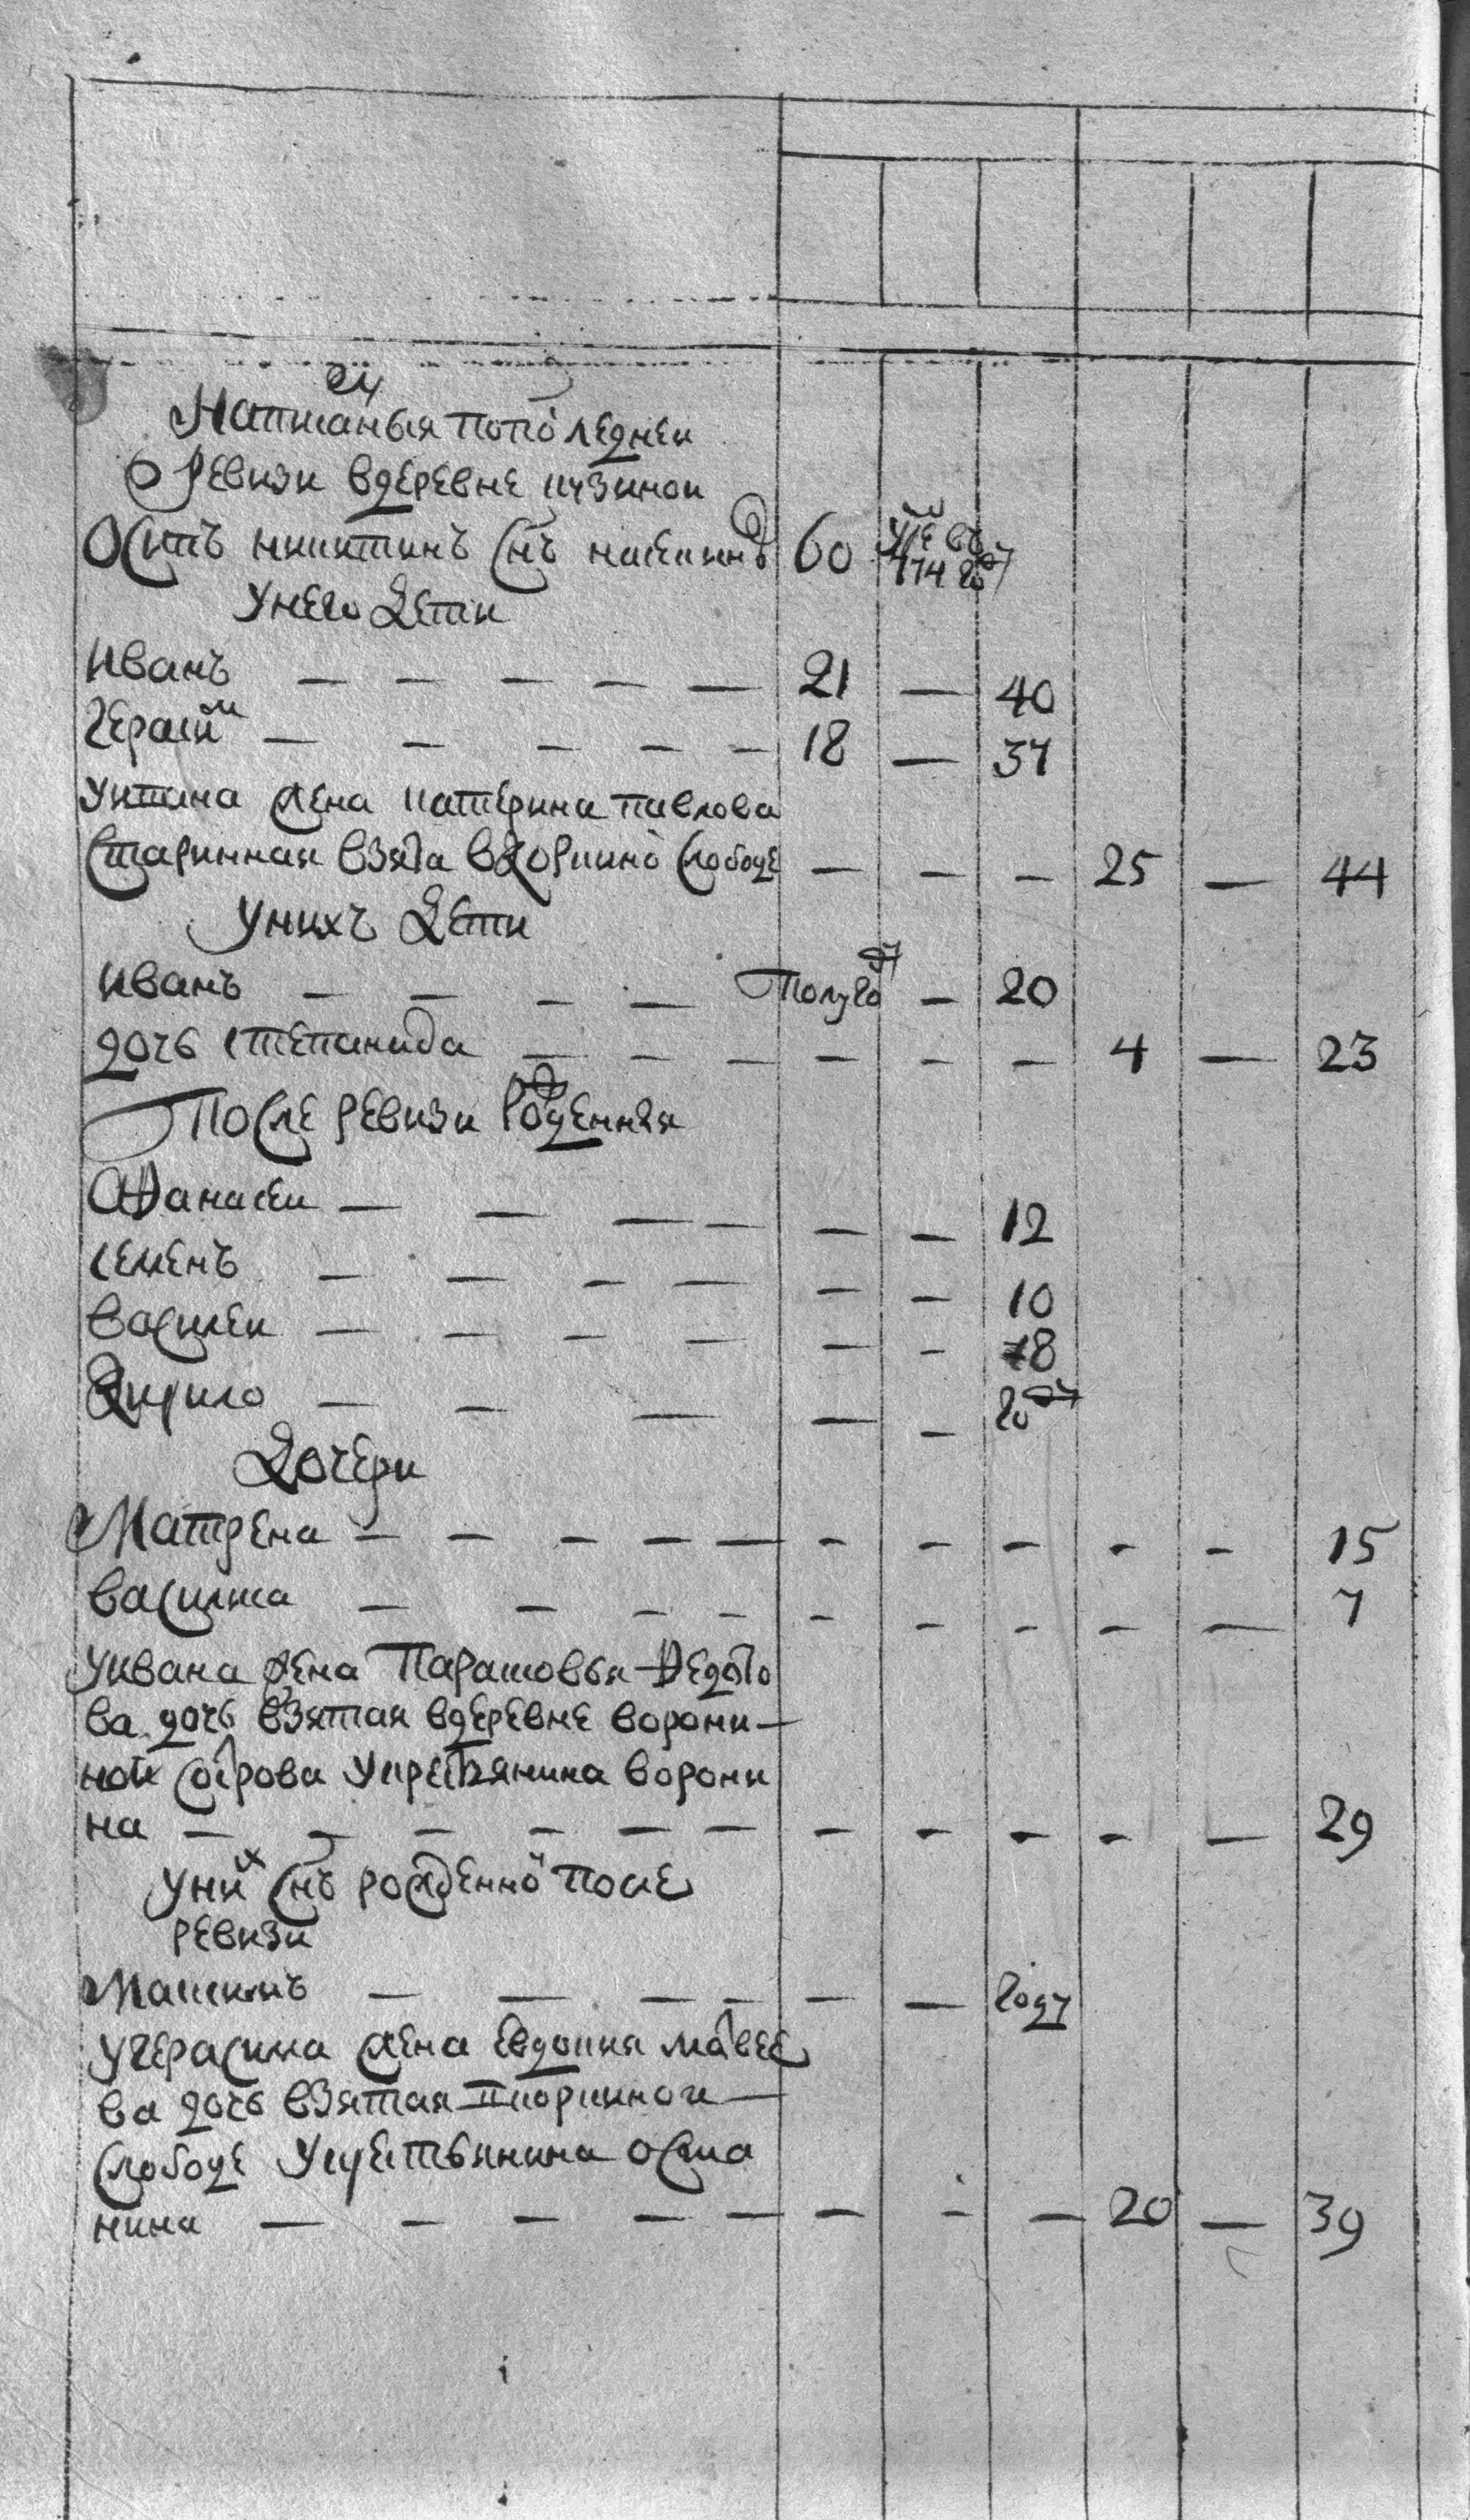 24
Написаныя попоследнеи
Ревизи вдеревне кузинои
Осипъ никитинъ снъ 60 уме въ 774 году
Унего Дети
иванъ — — — — — 21 — 40
Герасим — — — — — 18 — 37
жена катерина павлова
старинная взята слободе — — — 25 — 44
Унихъ Дети
иванъ — — — — Полуго ду — 20
дочь степанида — — — — — — 4 — 23
После ревизи Рожденныя
Афанасеи — — — — — — 12
семенъ — — — — — — 10
василеи — — — — — — 8
Кирило — — — — — году
Дочери
Матрена — — — — — — — — — — 15
василиса — — — — — — — — — 7
Уивана жена Парасковья Федото
ва дочь взятая вдеревне ворони
нои Укрестьянина ворони
на — — — — — — — — — — — 29
Уних снъ рожденно после
ревизи
Максимъ — — — — — — году
Угерасима жена евдокия матвее
ва дочь взятая
слободе Укрестьянина осма
нина — — — — — — — — 20 — 39